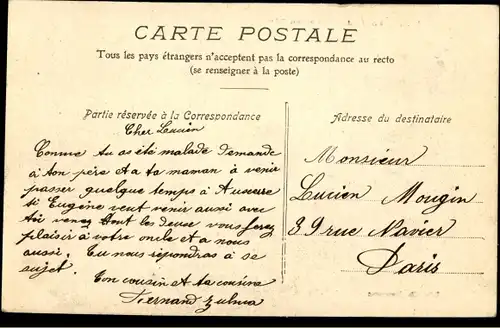 CARTE POSTALE
Tous les pays étrangers n'acceptent pas la correspondance au recto
(se renseigner à la poste)
Partie réservée à la Correspondance
Cher Lucien
Comme tu as été malade demande
à ton père et a ta maman à venir
passer quelque temps à Auxerre
si Eugène veut venir aussi avec
toi venez tout les deux vous ferez
plaisir à votre oncle et a nous
aussi. Tu nous répondras à se
sujet.
Ton cousin et ta cousine
Fernand Zulma
Adresse du destinataire
Monsieur
Lucien Mougin
39 rue Navier
Paris